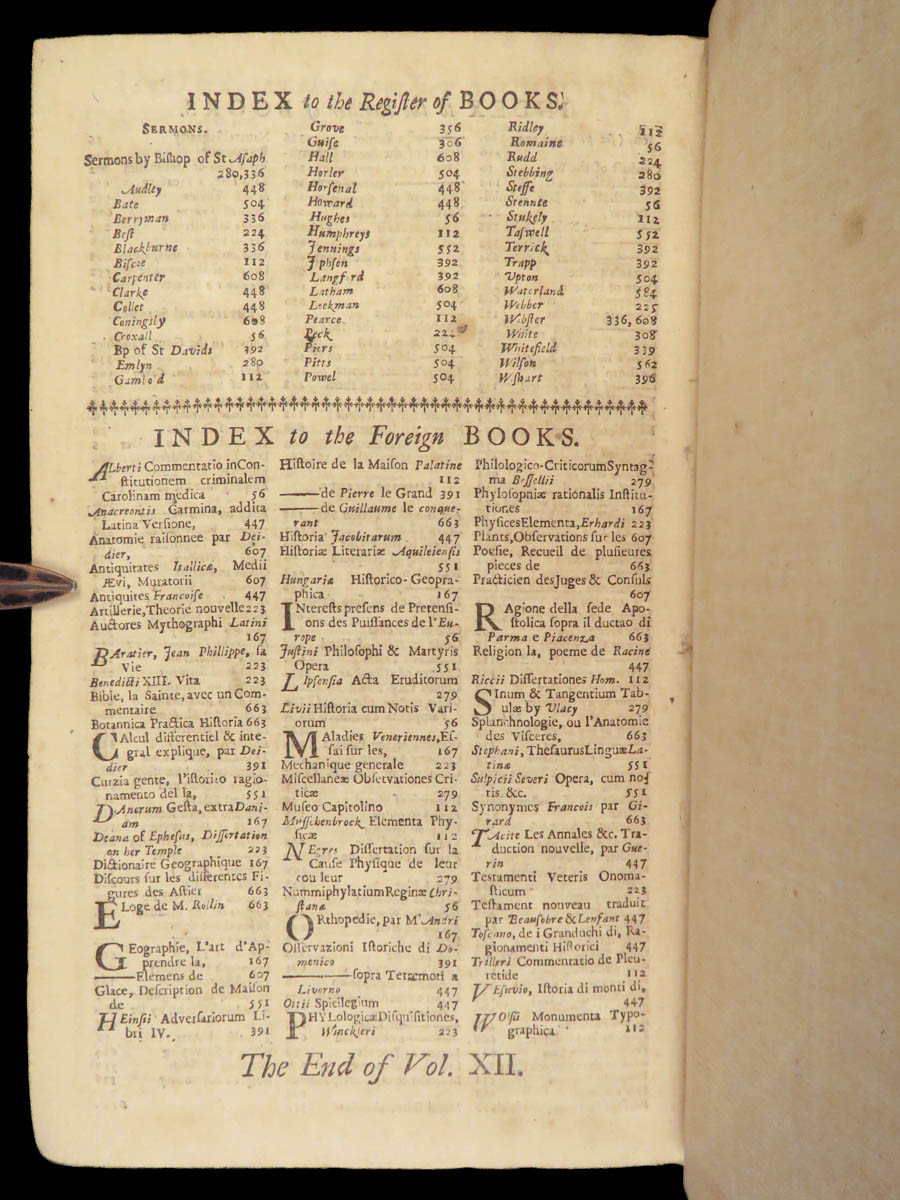 INDEX to the Regiſter of BOOKS.
SERMONS.
Sermons by Biſhop of St Aſaph
280,336
Audley 448
Bate 504
Berryman 336
Beſt 224
Blackburne 336
Biſcoe 112
Carpenter 608
Clarke 448
Collet 448
Coningſby 608
Croxall 56
Bp of St Davids 392
Emlyn 280
112
Grove 356
Guiſe 306
Hall 608
Horler 504
Horſenal 448
Howard 448
Hughes 56
Humphreys 112
Jennings 552
392
Langford 392
Latham 608
504
Pearce 112
Peck 224
Piers 504
Pitts 504
Powel 504
Ridley 112
Romaine 56
Rudd 224
Stebbing 280
Steffe 392
Stennte 56
Stukely 112
Taſwell 552
Terrick 392
Trapp 392
Upton 504
Waterland 584
Webber 225
Webſter 336, 608
White 308
Whitefield 339
Wilſon 562
Wiſhart 396
INDEX to the Foreign BOOKS.
ALberti Commentatio inCon-
ſtitutionem criminalem
Carolinam medica 56
Anacreontis Carmina, addita
Latina Verſione, 447
Anatomie raiſonnee par Dei-
dier, 607
Antiquitates Italicæ, Medii
Ævi, Muratorii 607
Antiquites Francoiſe 447
Artillerie,Theorie nouvelle223
Auctores Mythographi Latini
167
BAratier, Jean Phillippe, ſa
Vie 223
Benedicti XIII. Vita 223
Bible, la Sainte, avec un Com-
mentaire 663
Botannica Practica Hiſtoria 663
CAlcul differentiel & inte-
gral explique, par Dei-
dier 391
Curzia gente, l'iſtorico ragio-
namento del la, 551
DAnorum Geſta, extraDani-
am 167
Deana of Epheſus, Diſſertation
on her Temple 223
Dictionaire Geographique 167
Diſcours ſur les differentes Fi-
gures des Aſtier 663
ELoge de M. Rollin 663
GEographie, L'art d'Ap-
prendre la, 167
——Elemens de 607
Glace, Deſcription de Maiſon
de 551
HEinſii Adverſariorum Li-
bri IV. 391
Hiſtoire de la Maiſon Palatine
112
——de Pierre le Grand 391
——de Guillaume le conque-
rant 663
Hiſtoria Jacobitarum 447
Hiſtoriæ Literariæ Aquileienſis
551
Hungariæ Hiſtorico-Geogra-
phica 167
INtereſts preſens de Pretenſi-
ons des Puiſſances de l'Eu-
rope 56
Juſtini Philoſophi & Martyris
Opera 551
LIpſenſia Acta Eruditorum
279
Livii Hiſtoria cum Notis Vari-
orum 56
MAladies Veneriennes,Eſ-
ſai ſur les, 167
Mechanique generale 223
Miſcellaneæ Obſervationes Cri-
ticæ 279
Muſeo Capitolino 112
Muſſchenbrock Elementa Phy-
ſicæ 112
NEgres Diſſertation ſur la
Cauſe Phyſique de leur
cou leur 279
NummiphylatiumReginæ Chri-
ſtanæ 56
ORthopedie, par Mr Andri
167
Oſſervazioni Iſtoriche di Do-
menico 391
——ſopra Terremori a
Livorno 447
Ottii Spicilegium 447
PHYLologicæDiſquiſitiones,
Winckleri 223
Philologico-CriticorumSyntag-
ma Beſſellii 279
Phyloſophiæ rationalis Inſtitu-
tiones 167
PhyſicesElementa,Erhardi 223
Plants,Obſervations ſur les 607
Poeſie, Recueil de pluſieures
pieces de 663
Practicien desJuges & Conſuls
607
RAgione della ſede Apo-
ſtolica ſopra il ductao di
Parma e Piacenza 663
Religion la, poeme de Racine
447
Riccii Diſſertationes Hom. 112
SInum & Tangentium Tab-
ulæ by Vlacy 279
Splanchnologie, ou l'Anatomie
des Viſceres, 663
Stephani, ThefaurusLinguæLa-
tinæ 551
Sulpicii Severi Opera, cum no-
tis &c. 551
Synonymes Francois par Gi-
rard 663
TAcite Les Annales &c. Tra-
duction nouvelle, par Gue-
rin 447
Teſtamenti Veteris Onoma-
ſticum 223
Teſtament nouveau traduit
par Beauſobre & Lenfant 447
Toſcano, de i Granduchi di, Ra-
gionamenti Hiſtorici 447
Trilleri Commentatio de Pleu-
retide 112
VEſuvio, Iſtoria di monti di,
447
WOlfii Monumenta Typo-
graphica 112
The End of Vol. XII.